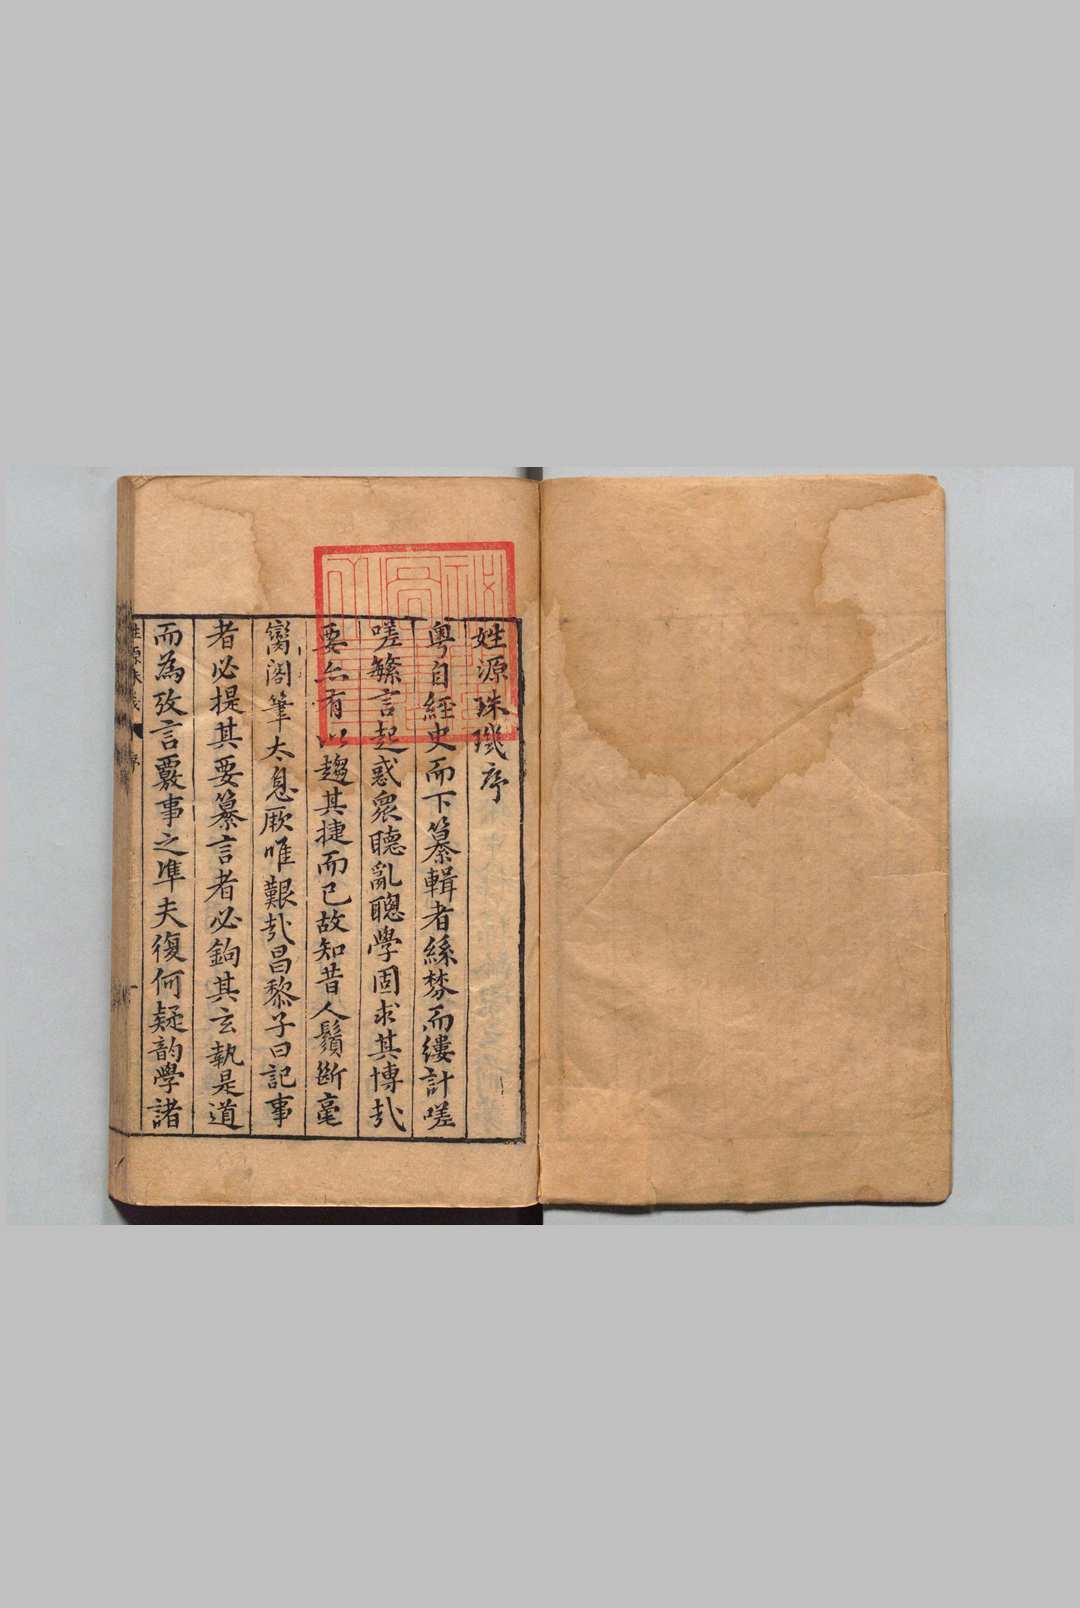 姓源珠璣序
粤自經史而下纂輯者絲棼而縷計嗟
嗟繁言起惑衆聽亂聰學固求其博㢤
要亦有以趨其捷而已故知昔人鬚斷毫
閣筆太息厥唯艱㢤昌黎子曰記事
者必提其要纂言者必鉤其玄執是道
而為攷言覈事之準夫復何疑韵學諸
序
一